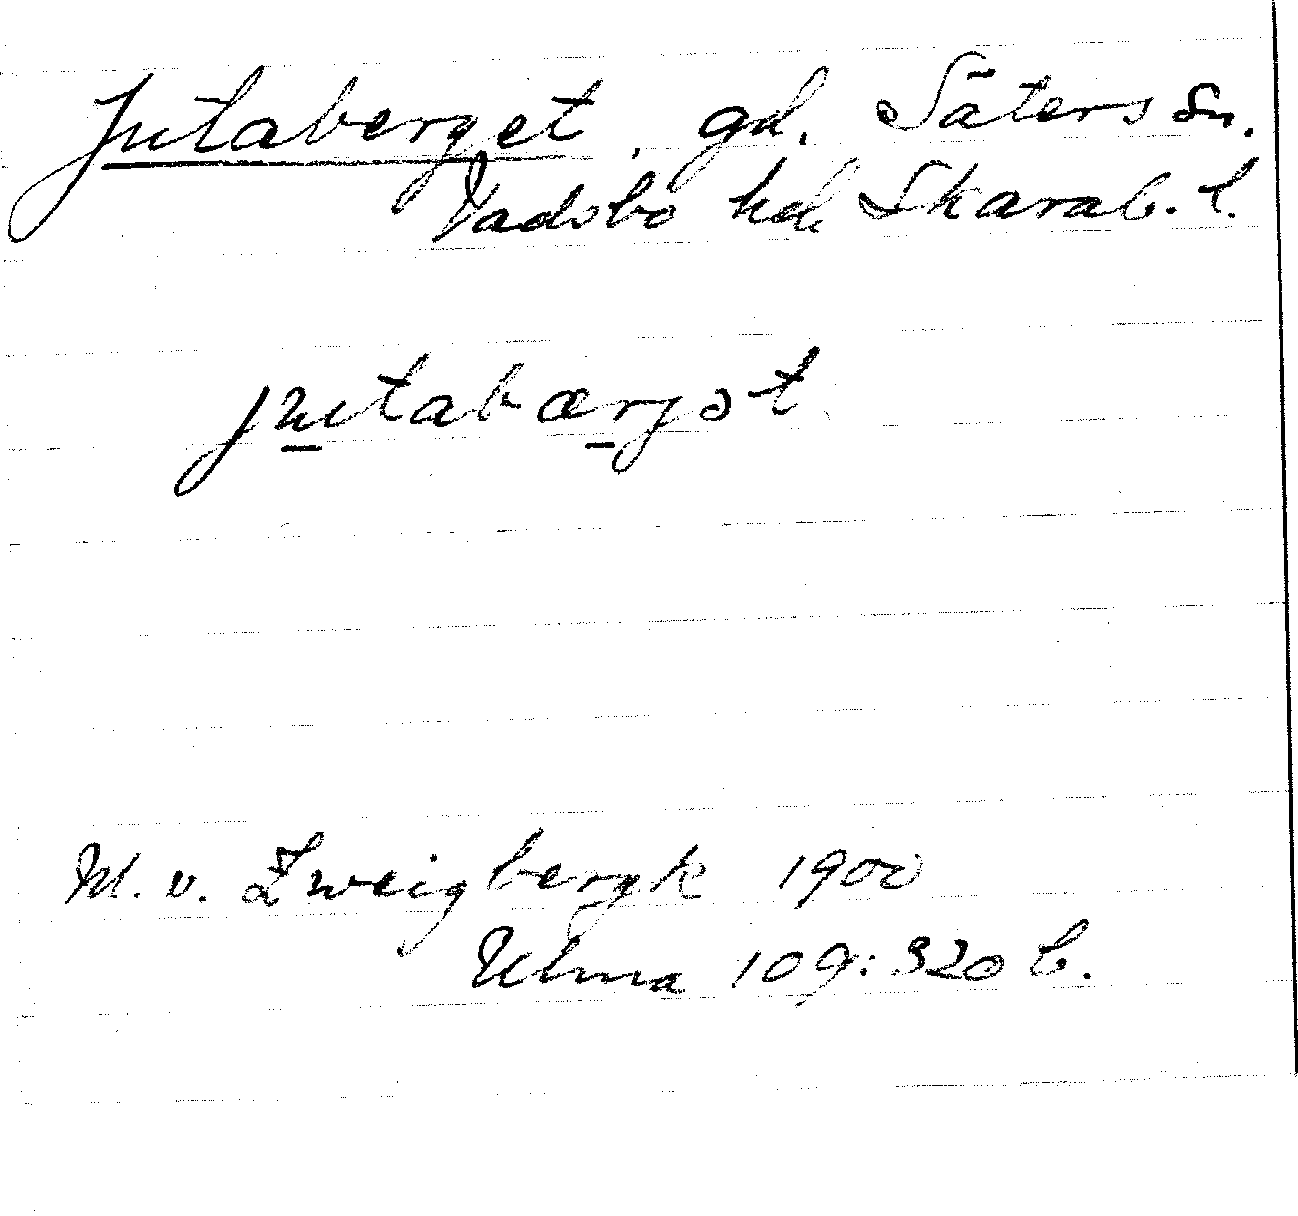 Jutaberget, gd. Säters sn.
Vadsbo hd. Skarab. l.
jutabærjət
M. v. Zweigbergk 1900
Ulma 109:320 b.